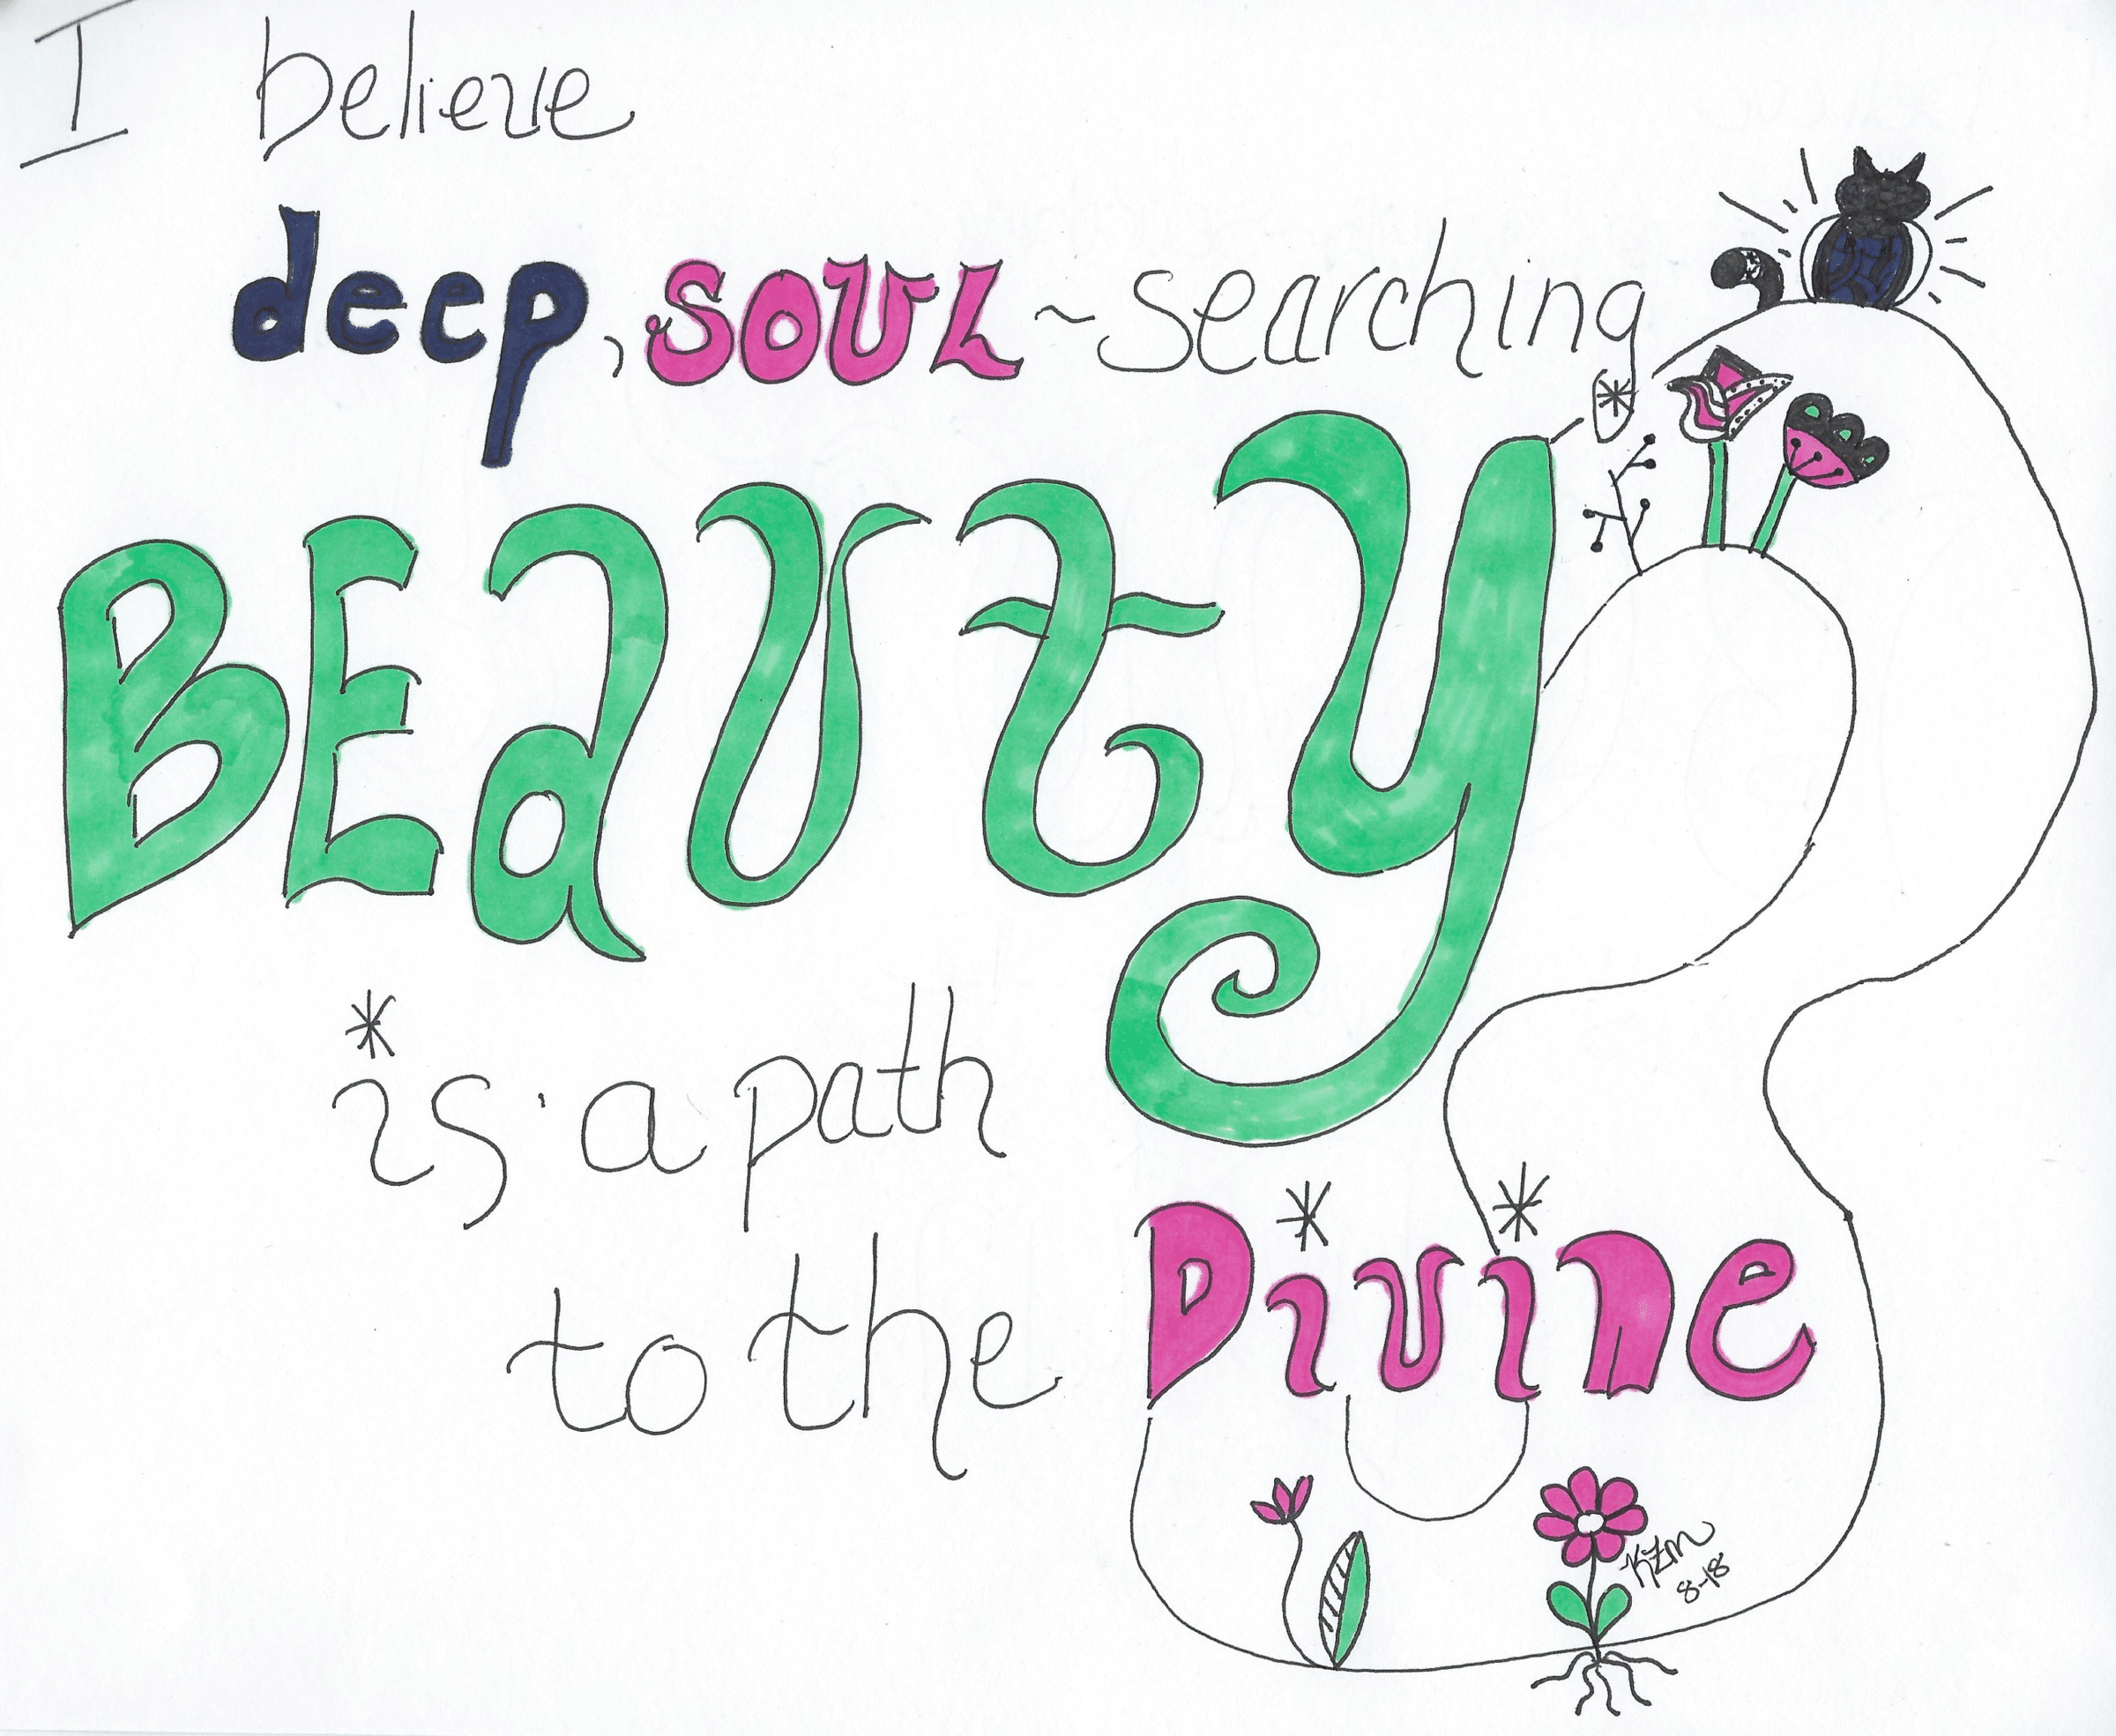 I believe
deep, SOUL~searching
BEaUty
is a path
to the Divine
KZM
8-18